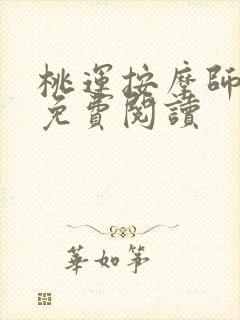 桃運按摩師
免費閱讀
華如箏